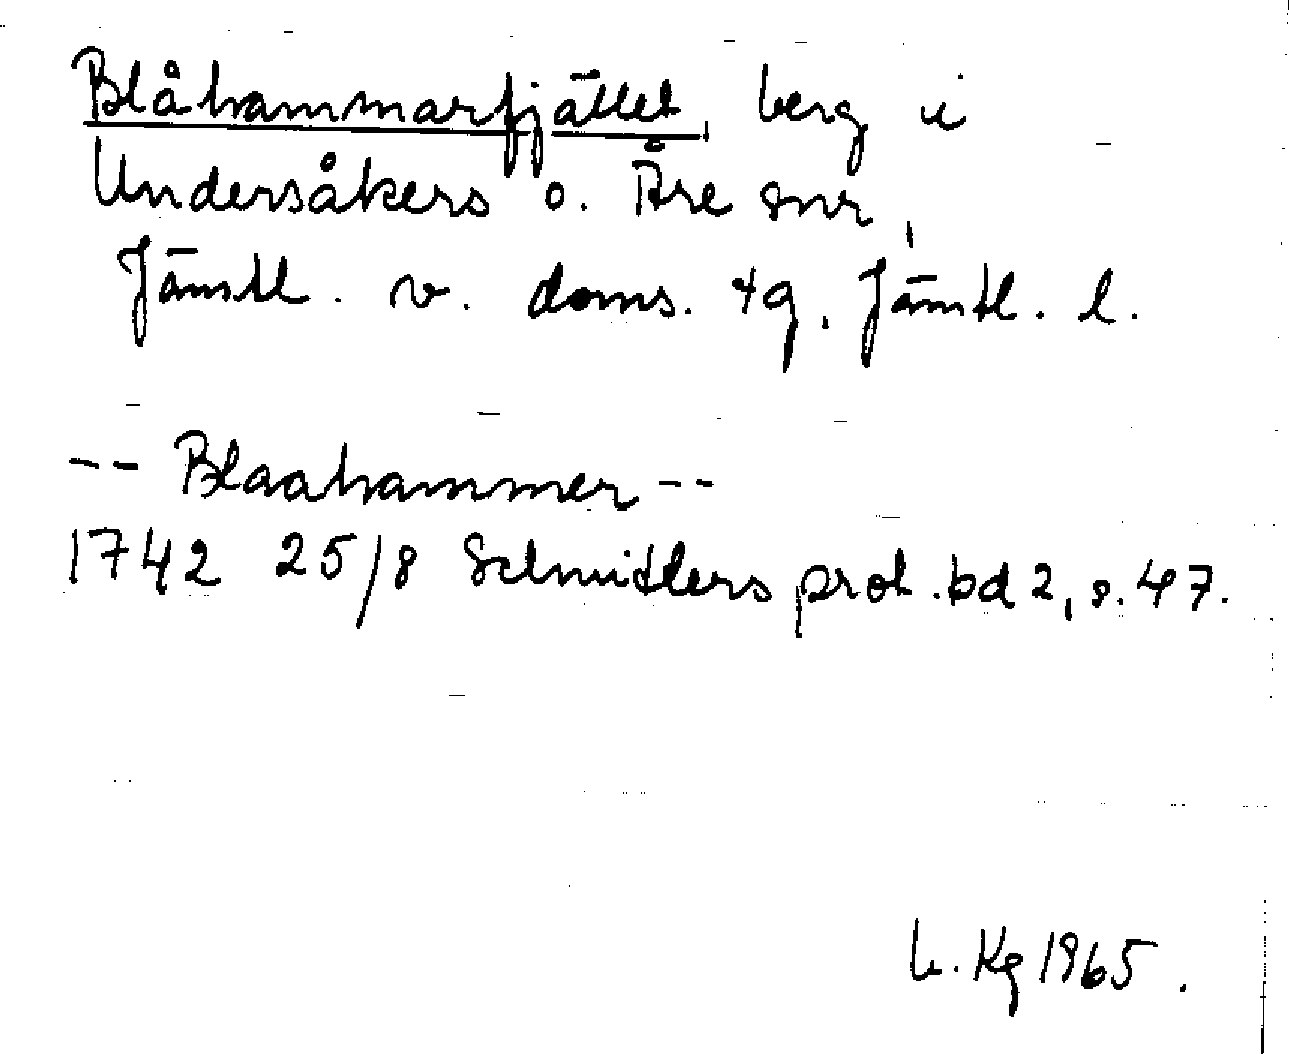 Blåhammarfjället, berg i
Undersåkers o. Åre snr,
Jämtl. v. doms. tg, Jämtl. l.
-- Blaahammer --
1742 25/8 Schnitlers prot. bd 2, s. 47.
Kg 1965.